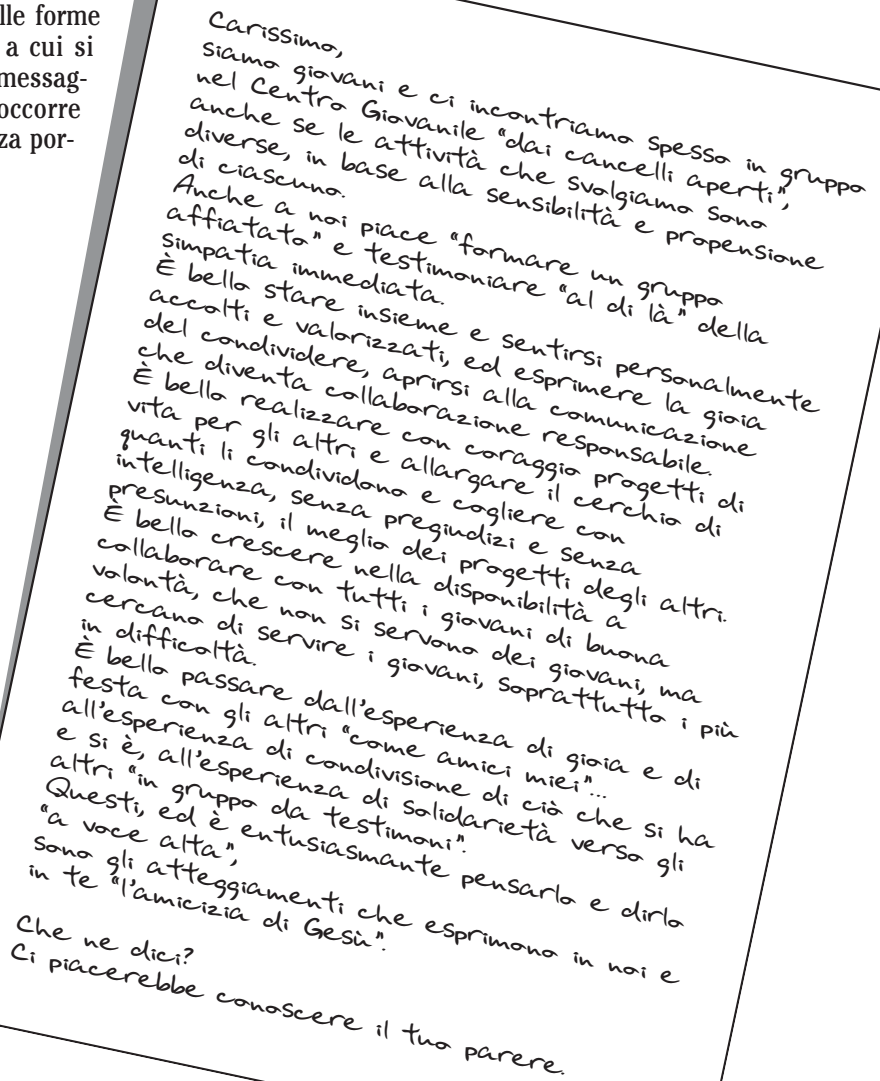 lle forme
a cui si
messag-
occorre
za por-
Carissimo,
siamo giovani e ci incontriamo spesso in gruppo
nel Centro Giovanile “dai cancelli aperti”,
anche se le attività che svolgiamo sono
diverse, in base alla sensibilità e propensione
di ciascuno.
Anche a noi piace “formare un gruppo
affiatato” e testimoniare “al di là” della
simpatia immediata.
È bello stare insieme e sentirsi personalmente
accolti e valorizzati, ed esprimere la gioia
del condividere, aprirsi alla comunicazione
che diventa collaborazione responsabile.
È bello realizzare con coraggio progetti di
vita per gli altri e allargare il cerchio di
quanti li condividono e cogliere con
intelligenza, senza pregiudizi e senza
presunzioni, il meglio dei progetti degli altri.
È bello crescere nella disponibilità a
collaborare con tutti i giovani di buona
volontà, che non si servono dei giovani, ma
cercano di servire i giovani, soprattutto i più
in difficoltà.
È bello passare dall'esperienza di gioia e di
festa con gli altri “come amici miei”...
all'esperienza di condivisione di ciò che si ha
e si è, all'esperienza di solidarietà verso gli
altri “in gruppo da testimoni”.
Questi, ed è entusiasmante pensarlo e dirlo
“a voce alta”,
sono gli atteggiamenti che esprimono in noi e
in te “l'amicizia di Gesù”.
Che ne dici?
Ci piacerebbe conoscere il tuo parere.